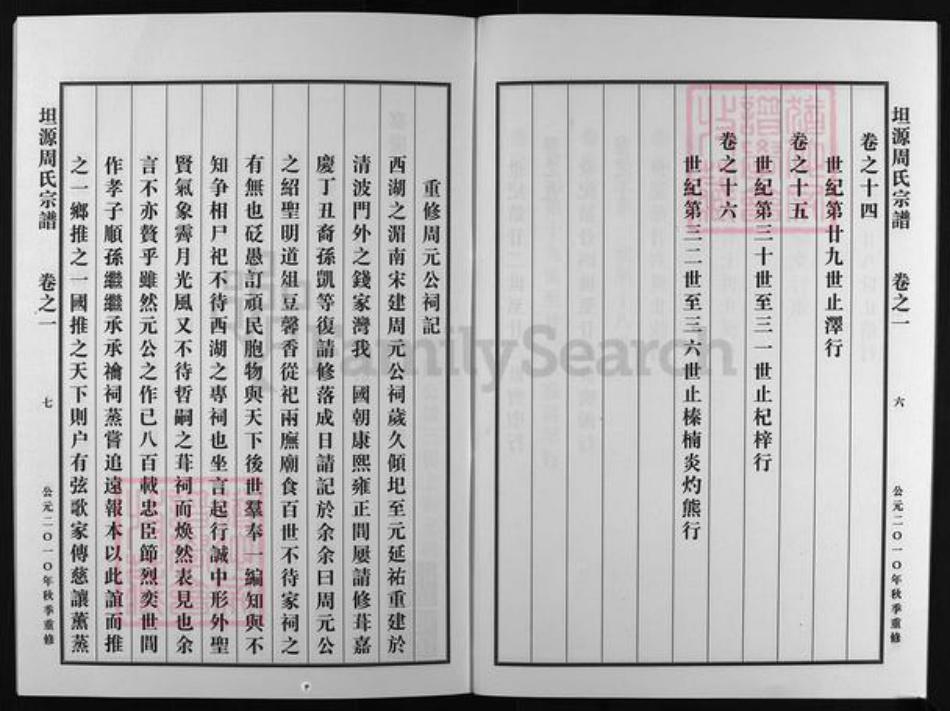 坦源周氏宗譜 卷之一 六 公元二〇一〇年秋季重修
卷之十四
世紀第廿九世止澤行
卷之十五
世紀第三十世至三一世止杞梓行
卷之十六
世紀第三二世至三六世止榛楠炎灼熊行
重修周元公祠記
西湖之湄南宋建周元公祠歲久傾圯至元延祐重建於
清波門外之錢家灣我 國朝康熙雍正間屢請修葺嘉
慶丁丑裔孫凱等復請修落成日請記於余余曰周元公
之紹聖明道俎豆馨香從祀兩廡廟食百世不待家祠之
有無也砭愚訂頑民胞物與天下後世羣奉一編知與不
知争相尸祀不待西湖之專祠也坐言起行誠中形外聖
賢氣象霽月光風又不待哲嗣之葺祠而煥然表見也余
言不亦贅乎雖然元公之作已八百載忠臣節烈奕世間
作孝子順孫繼繼承承禴祠蒸嘗追遠報本以此誼而推
之一鄉推之一國推之天下則户有弦歌家傳慈讓薰蒸
坦源周氏宗譜 卷之一 七 公元二〇一〇年秋季重修
FamilySearch